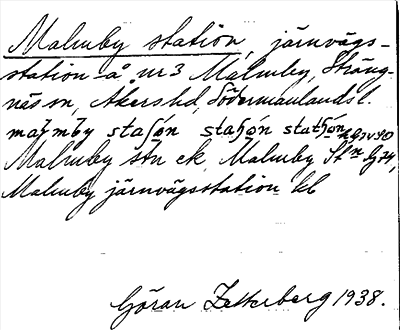 Malmby station, järnvägs-
station å nr 3 Malmby, Sträng-
näs sn, Åkers hd, Södermanlands l.
malmby
Malmby stn ek, Malmby St:n
Malmby järnvägsstation kb
Göran Zetterberg 1938.